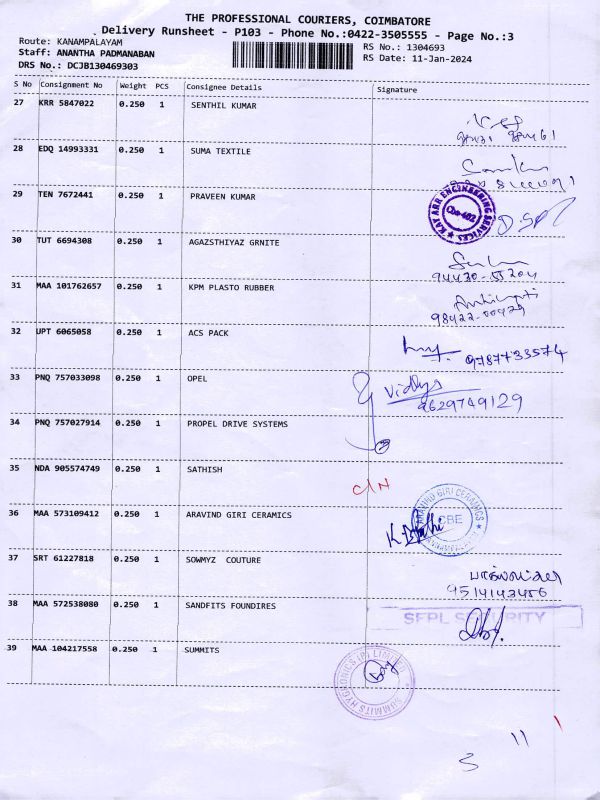 THE PROFESSIONAL COURIERS, COIMBATORE
Delivery Runsheet - P103 - Phone No.:0422-3505555 - Page No.:3
Route: KANAMPALAYAM
RS No.: 1304693
Staff: ANANTHA PADMANABAN
RS Date: 11-Jan-2024
DRS No.: DCJB130469303
S No Consignment No Weight PCS Consignee Details Signature
27 KRR 5847022 0.250 1 SENTHIL KUMAR
28 EDQ 14993331 0.250 1 SUMA TEXTILE
29 TEN 7672441 0.250 1 PRAVEEN KUMAR
KAY ARR ENGINEERING SERVICES
30 TUT 6694308 0.250 1 AGAZSTHIYAZ GRNITE
31 MAA 101762657 0.250 1 KPM PLASTO RUBBER
32 UPT 6065058 0.250 1 ACS PACK
9787733574
33 PNQ 757033098 0.250 1 OPEL
Vidhya
9629749129
34 PNQ 757027914 0.250 1 PROPEL DRIVE SYSTEMS
35 NDA 905574749 0.250 1 SATHISH
C/N
36 MAA 573109412 0.250 1 ARAVIND GIRI CERAMICS
ARAVIND GIRI CERAMICS
CBE
37 SRT 61227818 0.250 1 SOWMYZ COUTURE
9514143456
38 MAA 572538080 0.250 1 SANDFITS FOUNDIRES
SFPL SECURITY
39 MAA 104217558 0.250 1 SUMMITS
SUMMITS HYGRONICS (P) LIMITED
11